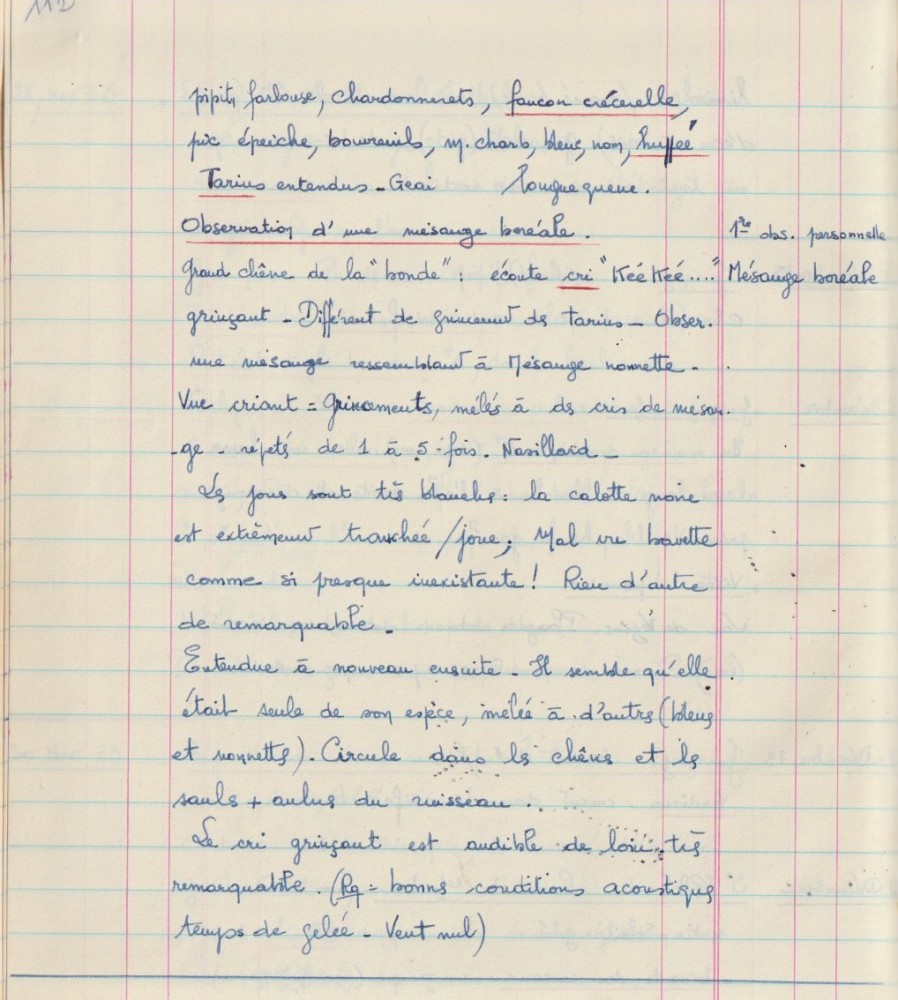 112
pipits farlouse, chardonnerets, faucon crécerelle,
pic épeiche, bouvreuils, m. charb, bleus, non, huppée
Tarins entendus - Geai / longue queue.
Observation d'une mésange boréale. 1ère obs. personnelle
Grand chêne de la "bonde" : écoute cri "Kéé Kéé...." Mésange boréale
grinçant - Différent de grincemt ds tarins - Obser.
une mésange ressemblant à Mésange nonnette -
Vue criant = Grincements, mélés à ds cris de mésan.
-ge - répetés de 1 à 5 fois. Nasillard -
Les joues sont très blanches : la calotte noire
est extrêmemt tranchée / joue; Mal vu bavette
comme si presque inexistante ! Rien d'autre
de remarquable -
Entendue à nouveau ensuite - Il semble qu'elle
était seule de son espèce, mélée à d'autres (bleus
et nonnettes). Circule dans les chênes et les
saules + aulnes du ruisseau.
Le cri grinçant est audible de loin, très
remarquable. (Rq = bonnes conditions acoustiques
temps de gelée - Vent nul)